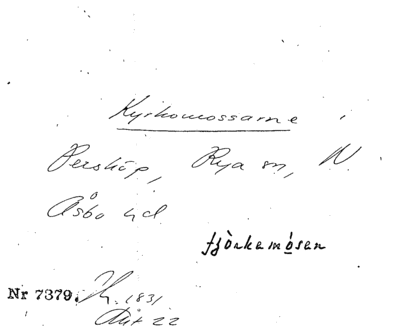 Kyrkomossarne
Perstöp, Rya sn, N.
Åsbo hd.
tjörkemåsen
Nr 7379. Jh. 1831
Akt 22